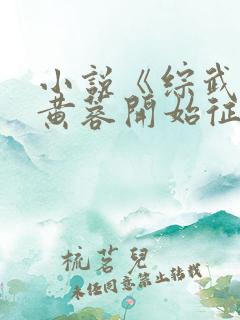 小說《综武
黄蓉開始征
梳茗兒
未经同意禁止转载